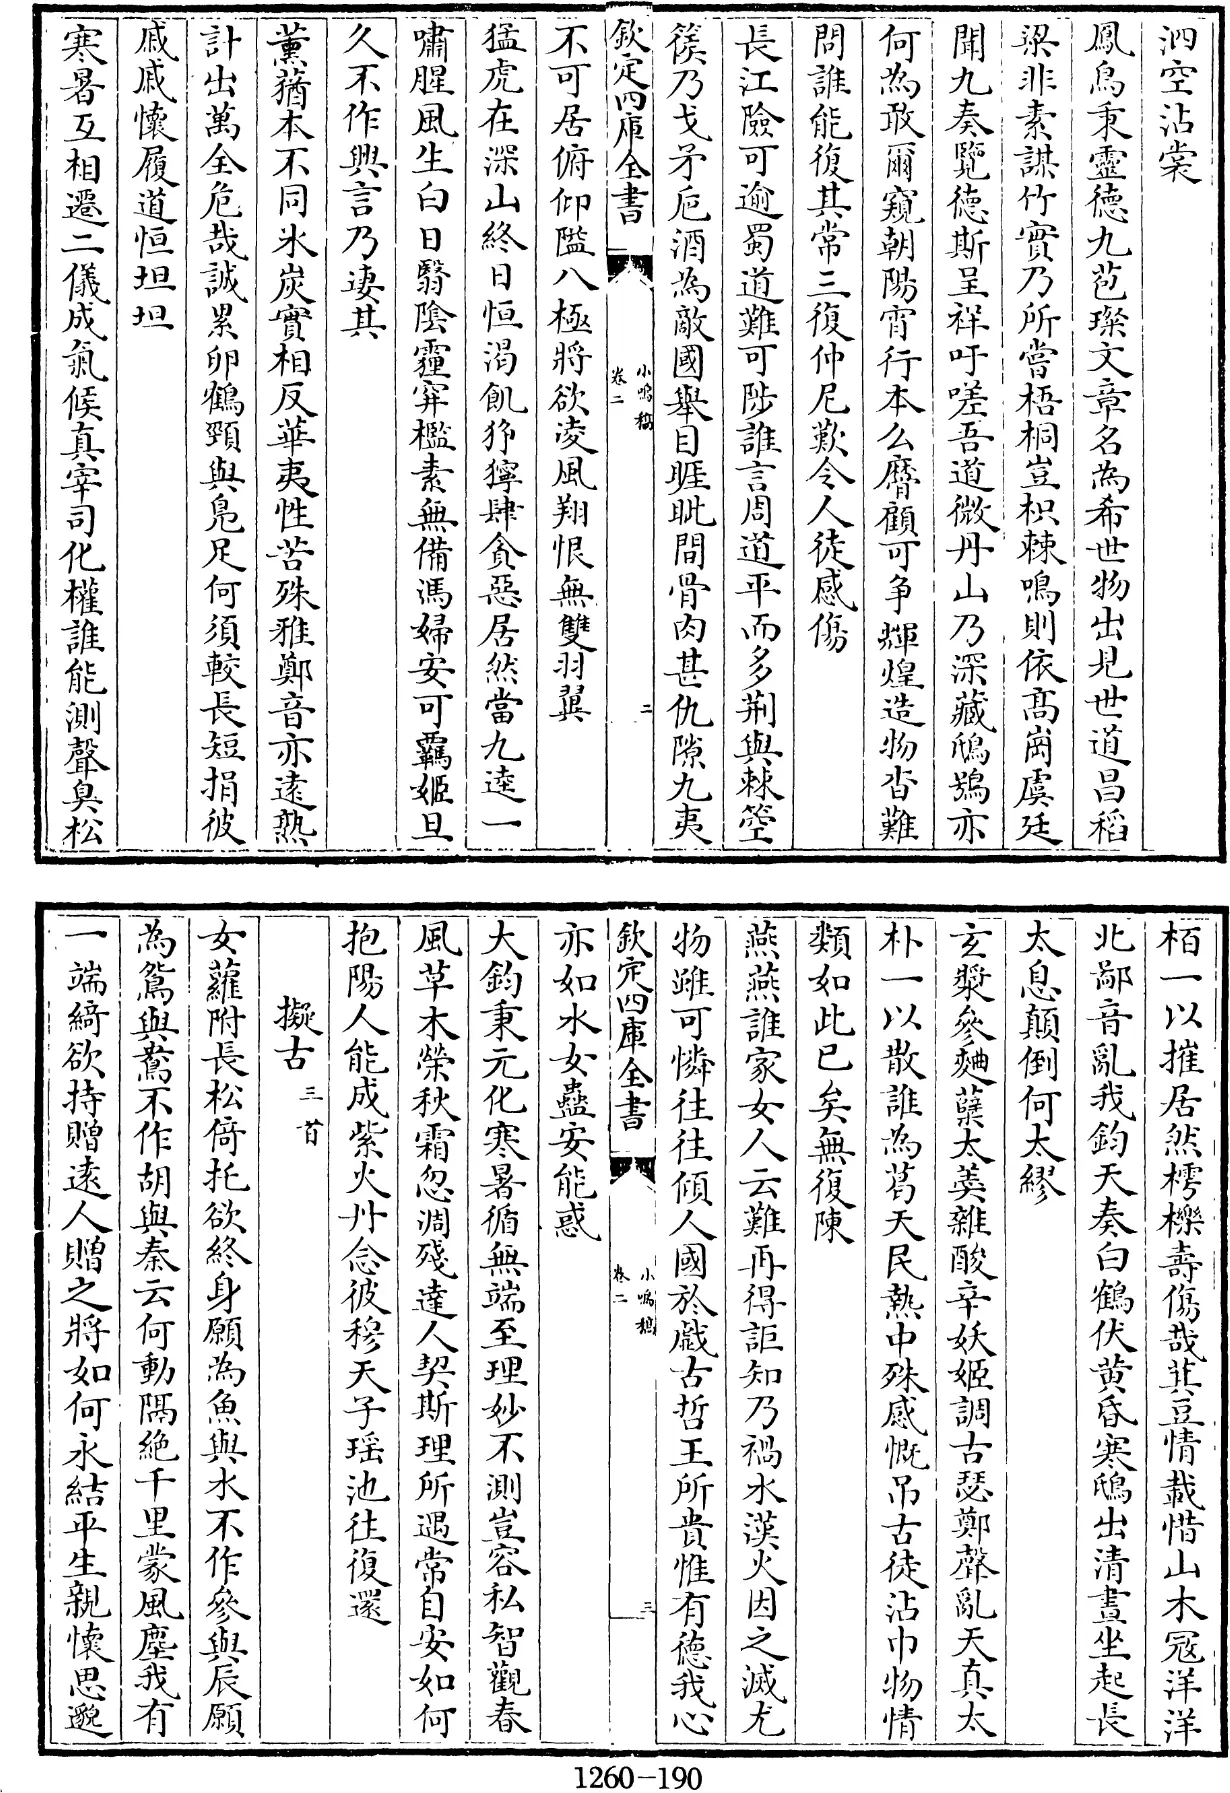 泗空沾裳
鳳鳥秉靈德九苞璨文章名為希世物出見世道昌稻
梁非素謀竹實乃所嘗梧桐豈枳棘鳴則依髙崗虞廷
聞九奏覽德斯呈祥吁嗟吾道微丹山乃深藏鴟鴞亦
何為敢爾窺朝陽宵行本么麽顧可争輝煌造物杳難
問誰能復其常三復仲尼歎令人徒感傷
長江險可逾蜀道難可陟誰言周道平而多荆與棘箜
篌乃戈矛巵酒為敵國舉目睚眦間骨肉甚仇隙九夷
欽定四庫全書
小鳴稿
卷二
二
不可居俯仰隘八極將欲凌風翔恨無雙羽翼
猛虎在深山終日恒渴飢猙獰肆貪惡居然當九逵一
嘯腥風生白日翳陰霾穽檻素無備馮婦安可羈姬旦
久不作興言乃凄其
薰蕕本不同氷炭實相反華夷性苦殊雅鄭音亦遠熟
計出萬全危哉誠累卵鶴頸與鳬足何須較長短捐彼
戚戚懷履道恒坦坦
寒暑互相遷二儀成氣候真宰司化權誰能測聲臭松
栢一以摧居然樗櫟壽傷哉萁豆情載惜山木冦洋洋
北鄙音亂我鈞天奏白鶴伏黄昏寒鴟出清晝坐起長
太息顛倒何太繆
玄漿參麯蘖太羮雜酸辛妖姬調古瑟鄭聲亂天真太
朴一以散誰為葛天民熱中殊感慨吊古徒沾巾物情
類如此已矣無復陳
燕燕誰家女人云難再得詎知乃禍水漢火因之滅尤
物雖可憐往往傾人國於戲古哲王所貴惟有德我心
欽定四庫全書
小鳴稿
卷二
三
亦如水女蠱安能惑
大鈞秉元化寒暑循無端至理妙不測豈容私智觀春
風草木榮秋霜忽凋殘達人契斯理所遇常自安如何
抱陽人能成紫火丹念彼穆天子瑶池往復還
擬古三首
女蘿附長松倚托欲終身願為魚與水不作參與辰願
為鴛與鴦不作胡與秦云何動隔絶千里蒙風塵我有
一端綺欲持贈遠人贈之將如何永結平生親懷思邈
1260-190